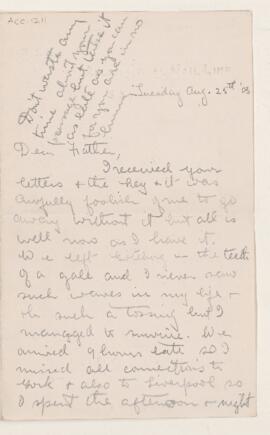 ACC 1211
Don't waste any
time about your
passage but take it
as late as you can
for you are in no
hurry
Tuesday Aug. 25th '08
Dear Father,
I received your
letters & the key & it was
awfully foolish of me to go
away without it but all is
well now as I have it.
We left in the teeth
of a gale and I never saw
such waves in my life &
oh such a tossing but I
managed to survive. We
arrived 9 hours late so I
missed all connections to
York & also to Liverpool so
I spent the afternoon & night